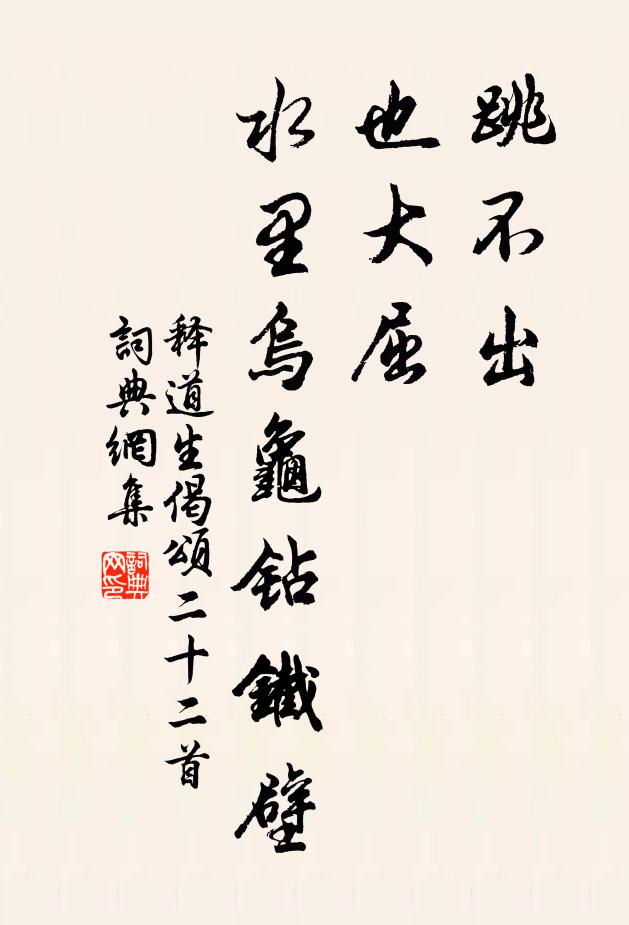 跳不出
也大屈
水里烏龜鉆鐵壁
释道生偈頌二十二首
詞典網集
詞典网印